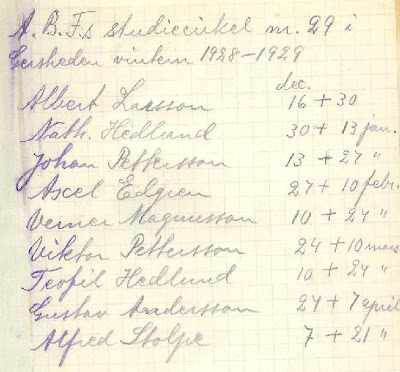 A.B.F:s studiecirkel nr. 29 i
Gersheden vintern 1928-1929
dec.
Albert Larsson 16 + 30
Nath. Hedlund 30 + 13 jan.
Johan Pettersson 13 + 27 "
Axel Edgren 27 + 10 febr.
Verner Magnusson 10 + 24 "
Viktor Pettersson 24 + 10 mars
Teofil Hedlund 10 + 24 "
Gustav Andersson 24 + 7 april
Alfred Stolpe 7 + 21 "